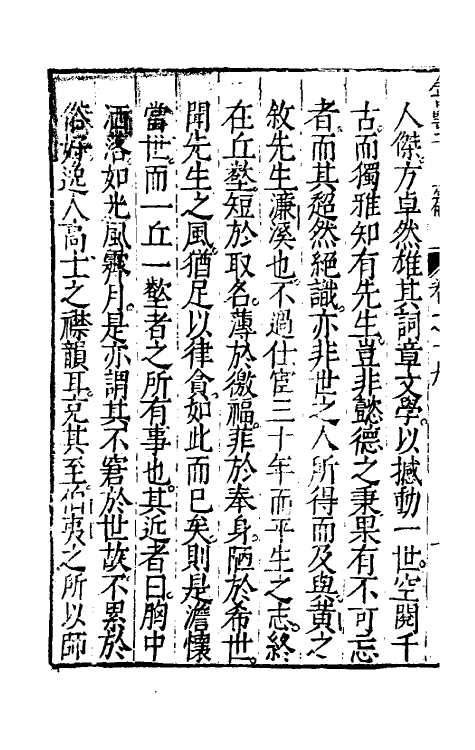 人傑方卓然雄其詞章文學以撼動一世空闊千
古而獨雅知有先生豈非懿德之秉果有不可忘
者而其超然絕識亦非世之人所得而及與黃之
敘先生濂溪也不過仕宦三十年而平生之志終
在丘壑短於取名薄於徼福菲於奉身陋於希世
聞先生之風猶足以律貪如此而已矣則是澹懷
當世而一丘一壑者之所有事也其近者曰胸中
洒落如光風霽月是亦謂其不窘於世故不累於
俗好逸人高士之襟韻耳充其至伯夷之所以師